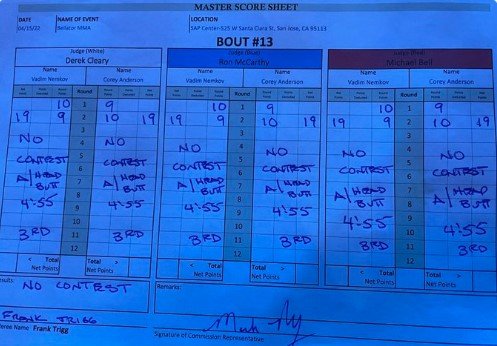 MASTER SCORE SHEET
DATE NAME OF EVENT LOCATION
04/15/22 Bellator MMA SAP Center-525 W Santa Clara St, San Jose, CA 95113
BOUT #13
Judge (White) Judge (Blue) Judge (Red)
Derek Cleary Ron McCarthy Michael Bell
Name Name Name Name Name Name
Vadim Nemkov Corey Anderson Vadim Nemkov Corey Anderson Vadim Nemkov Corey Anderson
Round Round Round
10 1 9 10 1 9 10 1 9
19 9 2 10 19 19 9 2 10 19 19 9 2 10 19
3 3 3
NO 4 NO NO 4 NO NO 4 NO
CONTEST 5 CONTEST CONTEST 5 CONTEST CONTEST 5 CONTEST
6 6 6
A/HEAD 7 A/HEAD A/HEAD 7 A/HEAD A/HEAD 7 A/HEAD
BUTT 8 BUTT BUTT 8 BUTT BUTT 8 BUTT
4:55 9 4:55 4:55 9 4:55 4:55 9 4:55
10 10 10
3RD 11 3RD 3RD 11 3RD 3RD 11 3RD
12 12 12
< Total Total > < Total Total > < Total Total >
Net Points Net Points Net Points Net Points Net Points Net Points
sults NO CONTEST Remarks:
FRANK TRIGG
eree Name Frank Trigg Signature of Commission Representative